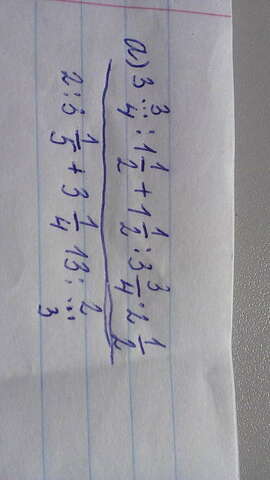 a) 3 3/4 : 1 1/2 + 1 1/2 : 3 3/4 · 2 1/2
2 : 3 1/5 + 3 1/4 13 : 2/3